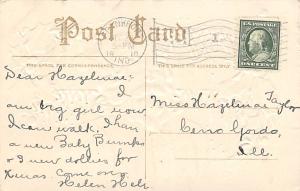 Post Card
THIS SPACE FOR CORRESPONDENCE
THIS SPACE FOR ADDRESS ONLY
IND.
1910
1
U.S. POSTAGE
ONE CENT
Dear Hazelmae:
I
am big girl now
I can walk, I han
a new Baby
& 2 new dollies for
Xmas. Come on
Helen
Miss Hazelmae Taylor
Cerro Gordo,
Ill.